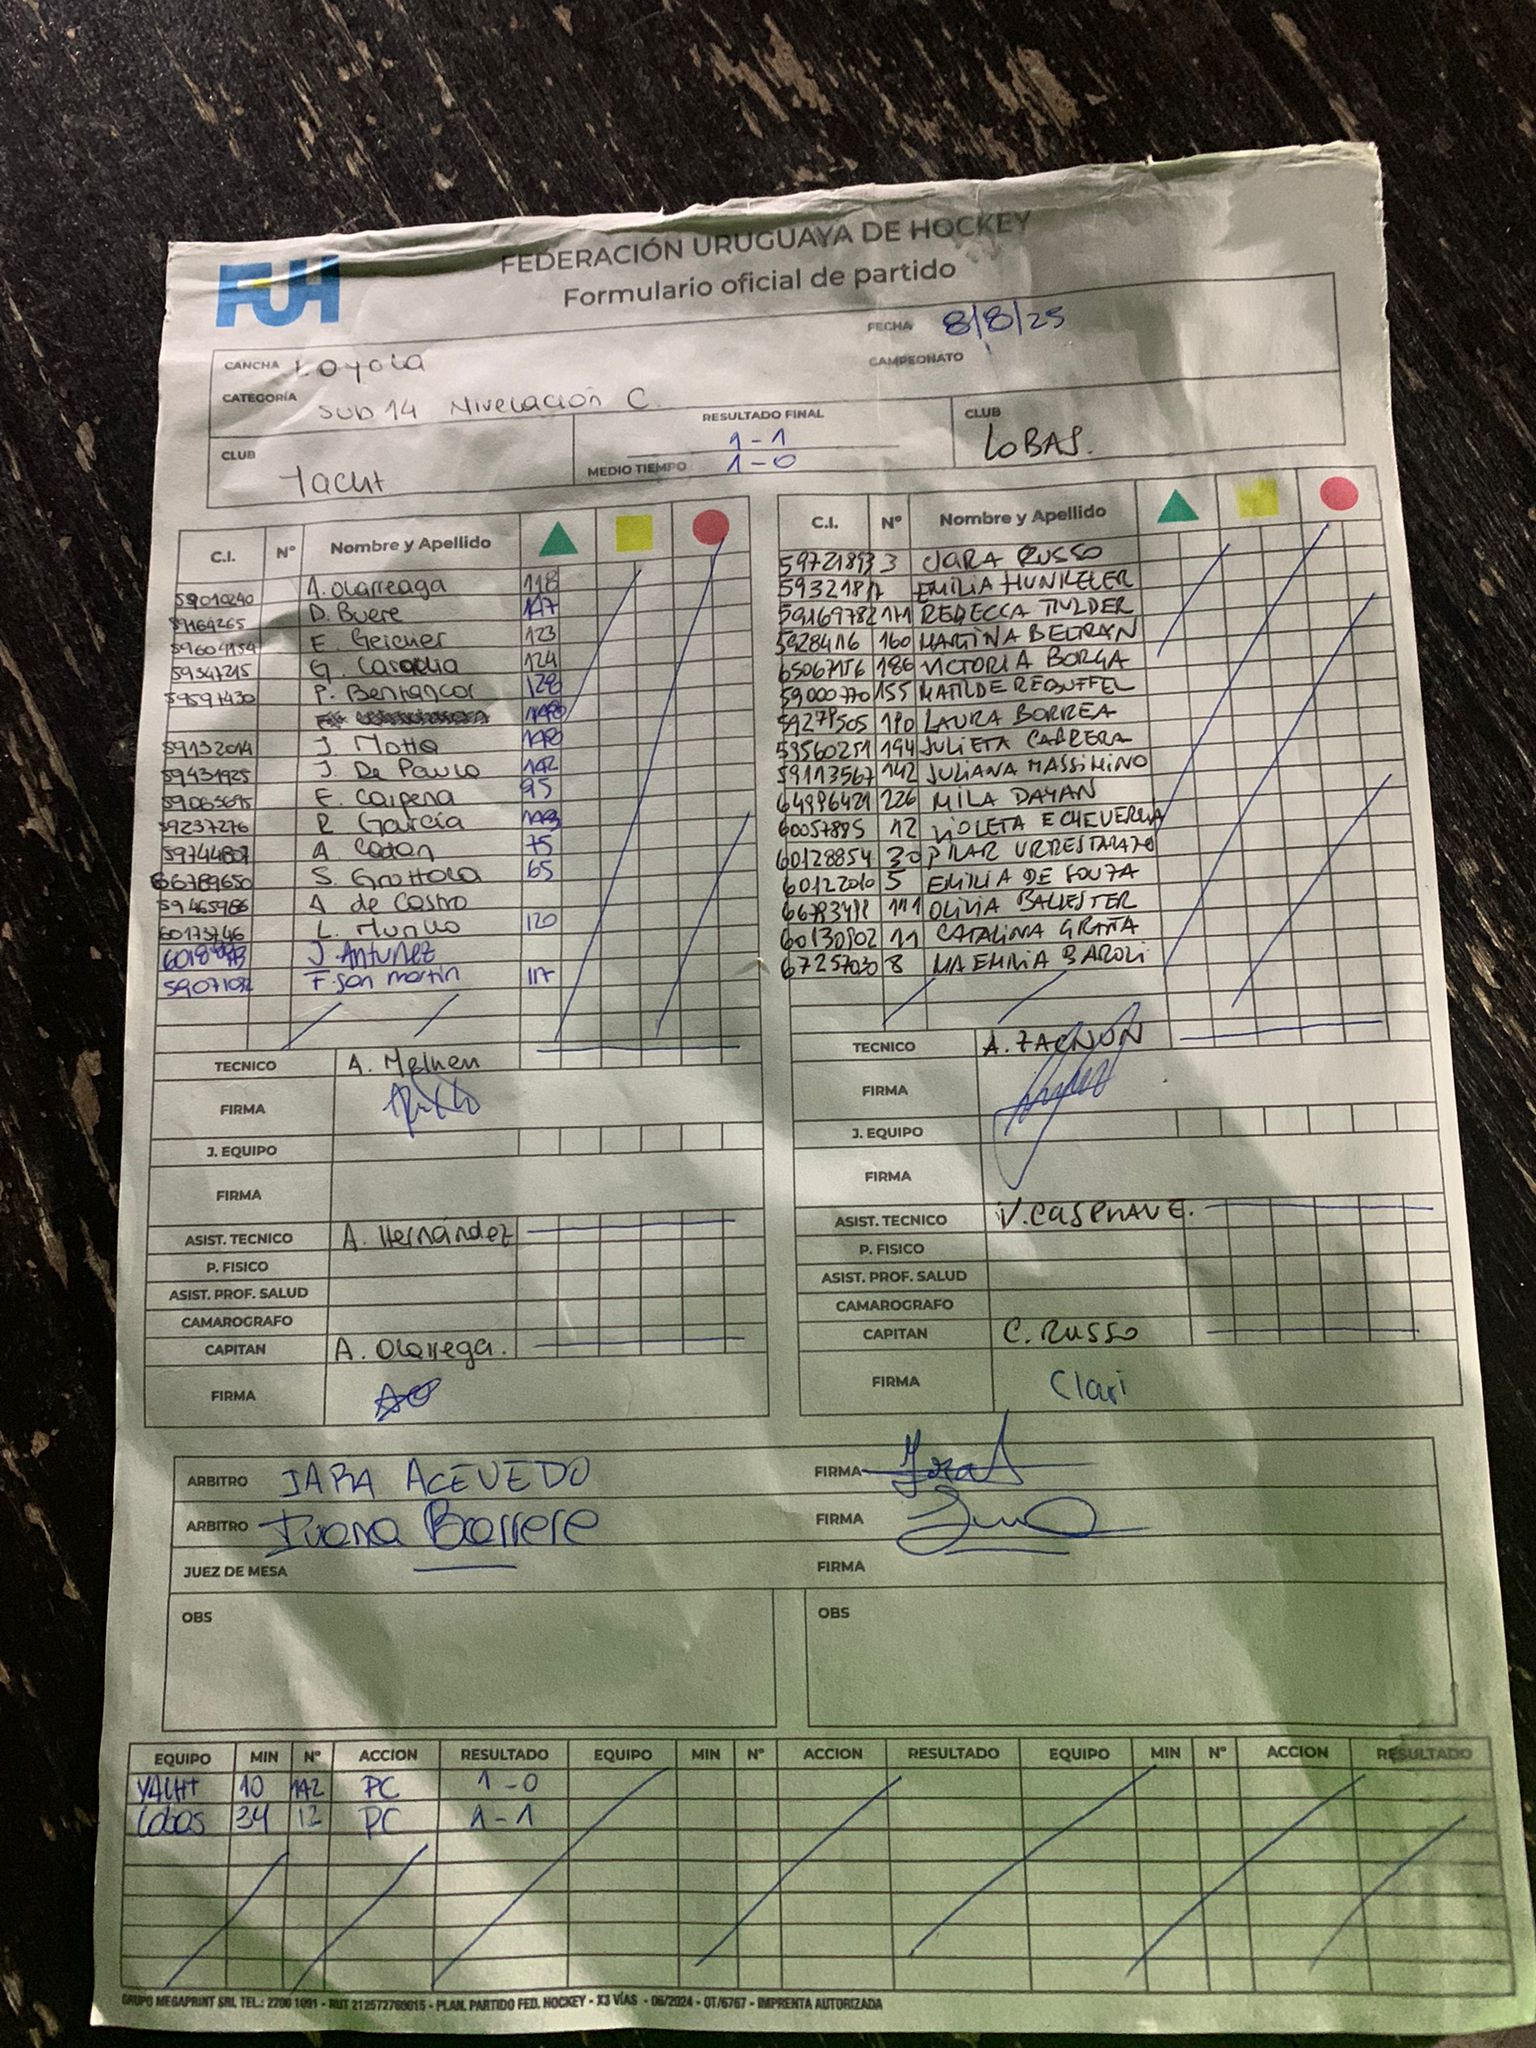 FUH
FEDERACIÓN URUGUAYA DE HOCKEY
Formulario oficial de partido
FECHA 8/8/25
CANCHA Loyola
CAMPEONATO
CATEGORÍA Sub 14 Nivelación C.
CLUB Yacht
RESULTADO FINAL 1-1
MEDIO TIEMPO 1-0
CLUB LOBAS.
C.I. Nº Nombre y Apellido
59010240 A. Olarreaga 118
59164265 D. Buere 147
E. Geicher 123
59347215 G. Casadia 124
59597430 P. Bentancor 128
59132014 J. Motta
59431925 J. De Pauco 142
E. Carpena 95
59237276 R. Garcia
A. Cotan 75
66789650 S. Grottola 65
59465986 A de Castro
60173746 L. Murillo 120
J. Antunez
F. San martin 117
TECNICO A. Melhen
FIRMA
J. EQUIPO
FIRMA
ASIST. TECNICO A. Hernández
P. FISICO
ASIST. PROF. SALUD
CAMAROGRAFO
CAPITAN A. Olarrega.
FIRMA AO
C.I. Nº Nombre y Apellido
59721893 3 CLARA RUSSO
EMILIA HUNKELER
59169782 171 REBECCA TULDER
5928416 160 MARTINA BELTRAN
65067156 186 VICTORIA BORGA
59000770 155 MATILDE REBUFFEL
59279505 190 LAURA BORREA
59560251 194 JULIETA CABRERA
59113567 142 JULIANA MASSIMINO
64996421 226 MILA DAYAN
60057885 12 VIOLETA ECHEVERRIA
60128854 30 PILAR URRESTARAZO
60122010 5 EMILIA DE SOUZA
111 OLIVIA BALLESTER
60130902 11 CATALINA GRAÑA
67257030 8 MA EMILIA BAROLI
TECNICO A. ZAGNON
FIRMA
J. EQUIPO
FIRMA
ASIST. TECNICO V. CASENAVE.
P. FISICO
ASIST. PROF. SALUD
CAMAROGRAFO
CAPITAN C. RUSSO
FIRMA Clari
ARBITRO JARA ACEVEDO FIRMA
ARBITRO Juana Barrere FIRMA
JUEZ DE MESA FIRMA
OBS OBS
EQUIPO MIN Nº ACCION RESULTADO EQUIPO MIN Nº ACCION RESULTADO EQUIPO MIN Nº ACCION RESULTADO
YACHT 10 142 PC 1-0
Lobas 34 12 PC 1-1
GRUPO MEGAPRINT SRL TEL.: 2700 1091 - RUT 212572760015 - PLAN. PARTIDO FED. HOCKEY - X3 VÍAS - 06/2024 - OT/6767 - IMPRENTA AUTORIZADA